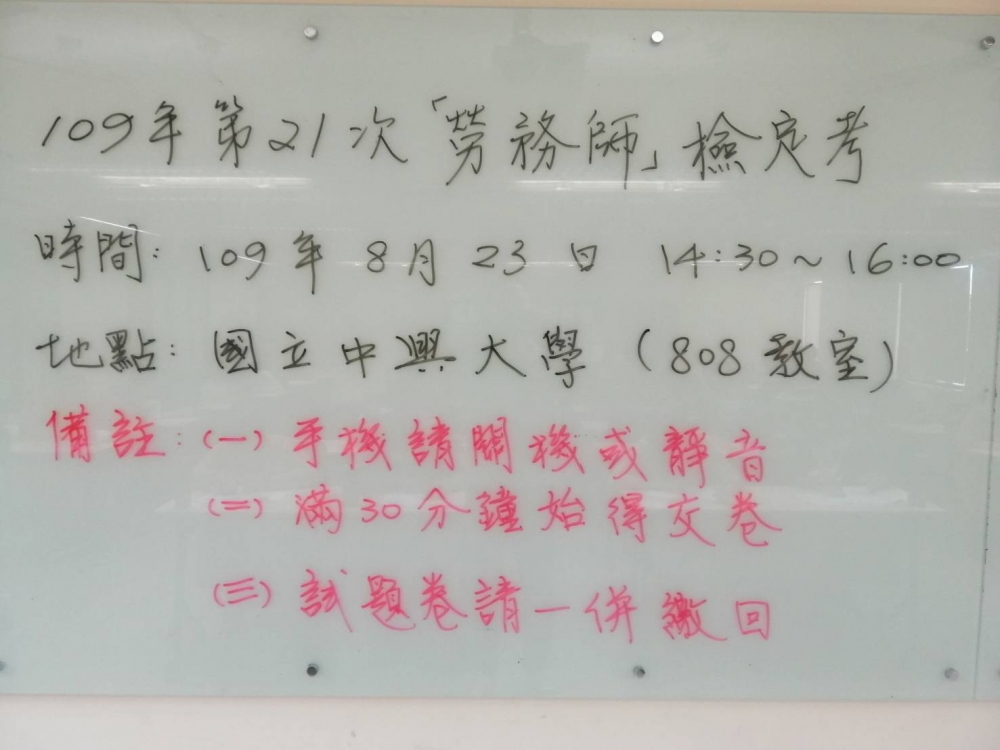 109年第21次「勞務師」檢定考
時間: 109年 8月 23日 14:30~16:00
地點: 國立中興大學 (808教室)
備註: (一) 手機請關機或靜音
(二) 滿30分鐘始得交卷
(三) 試題卷請一併繳回